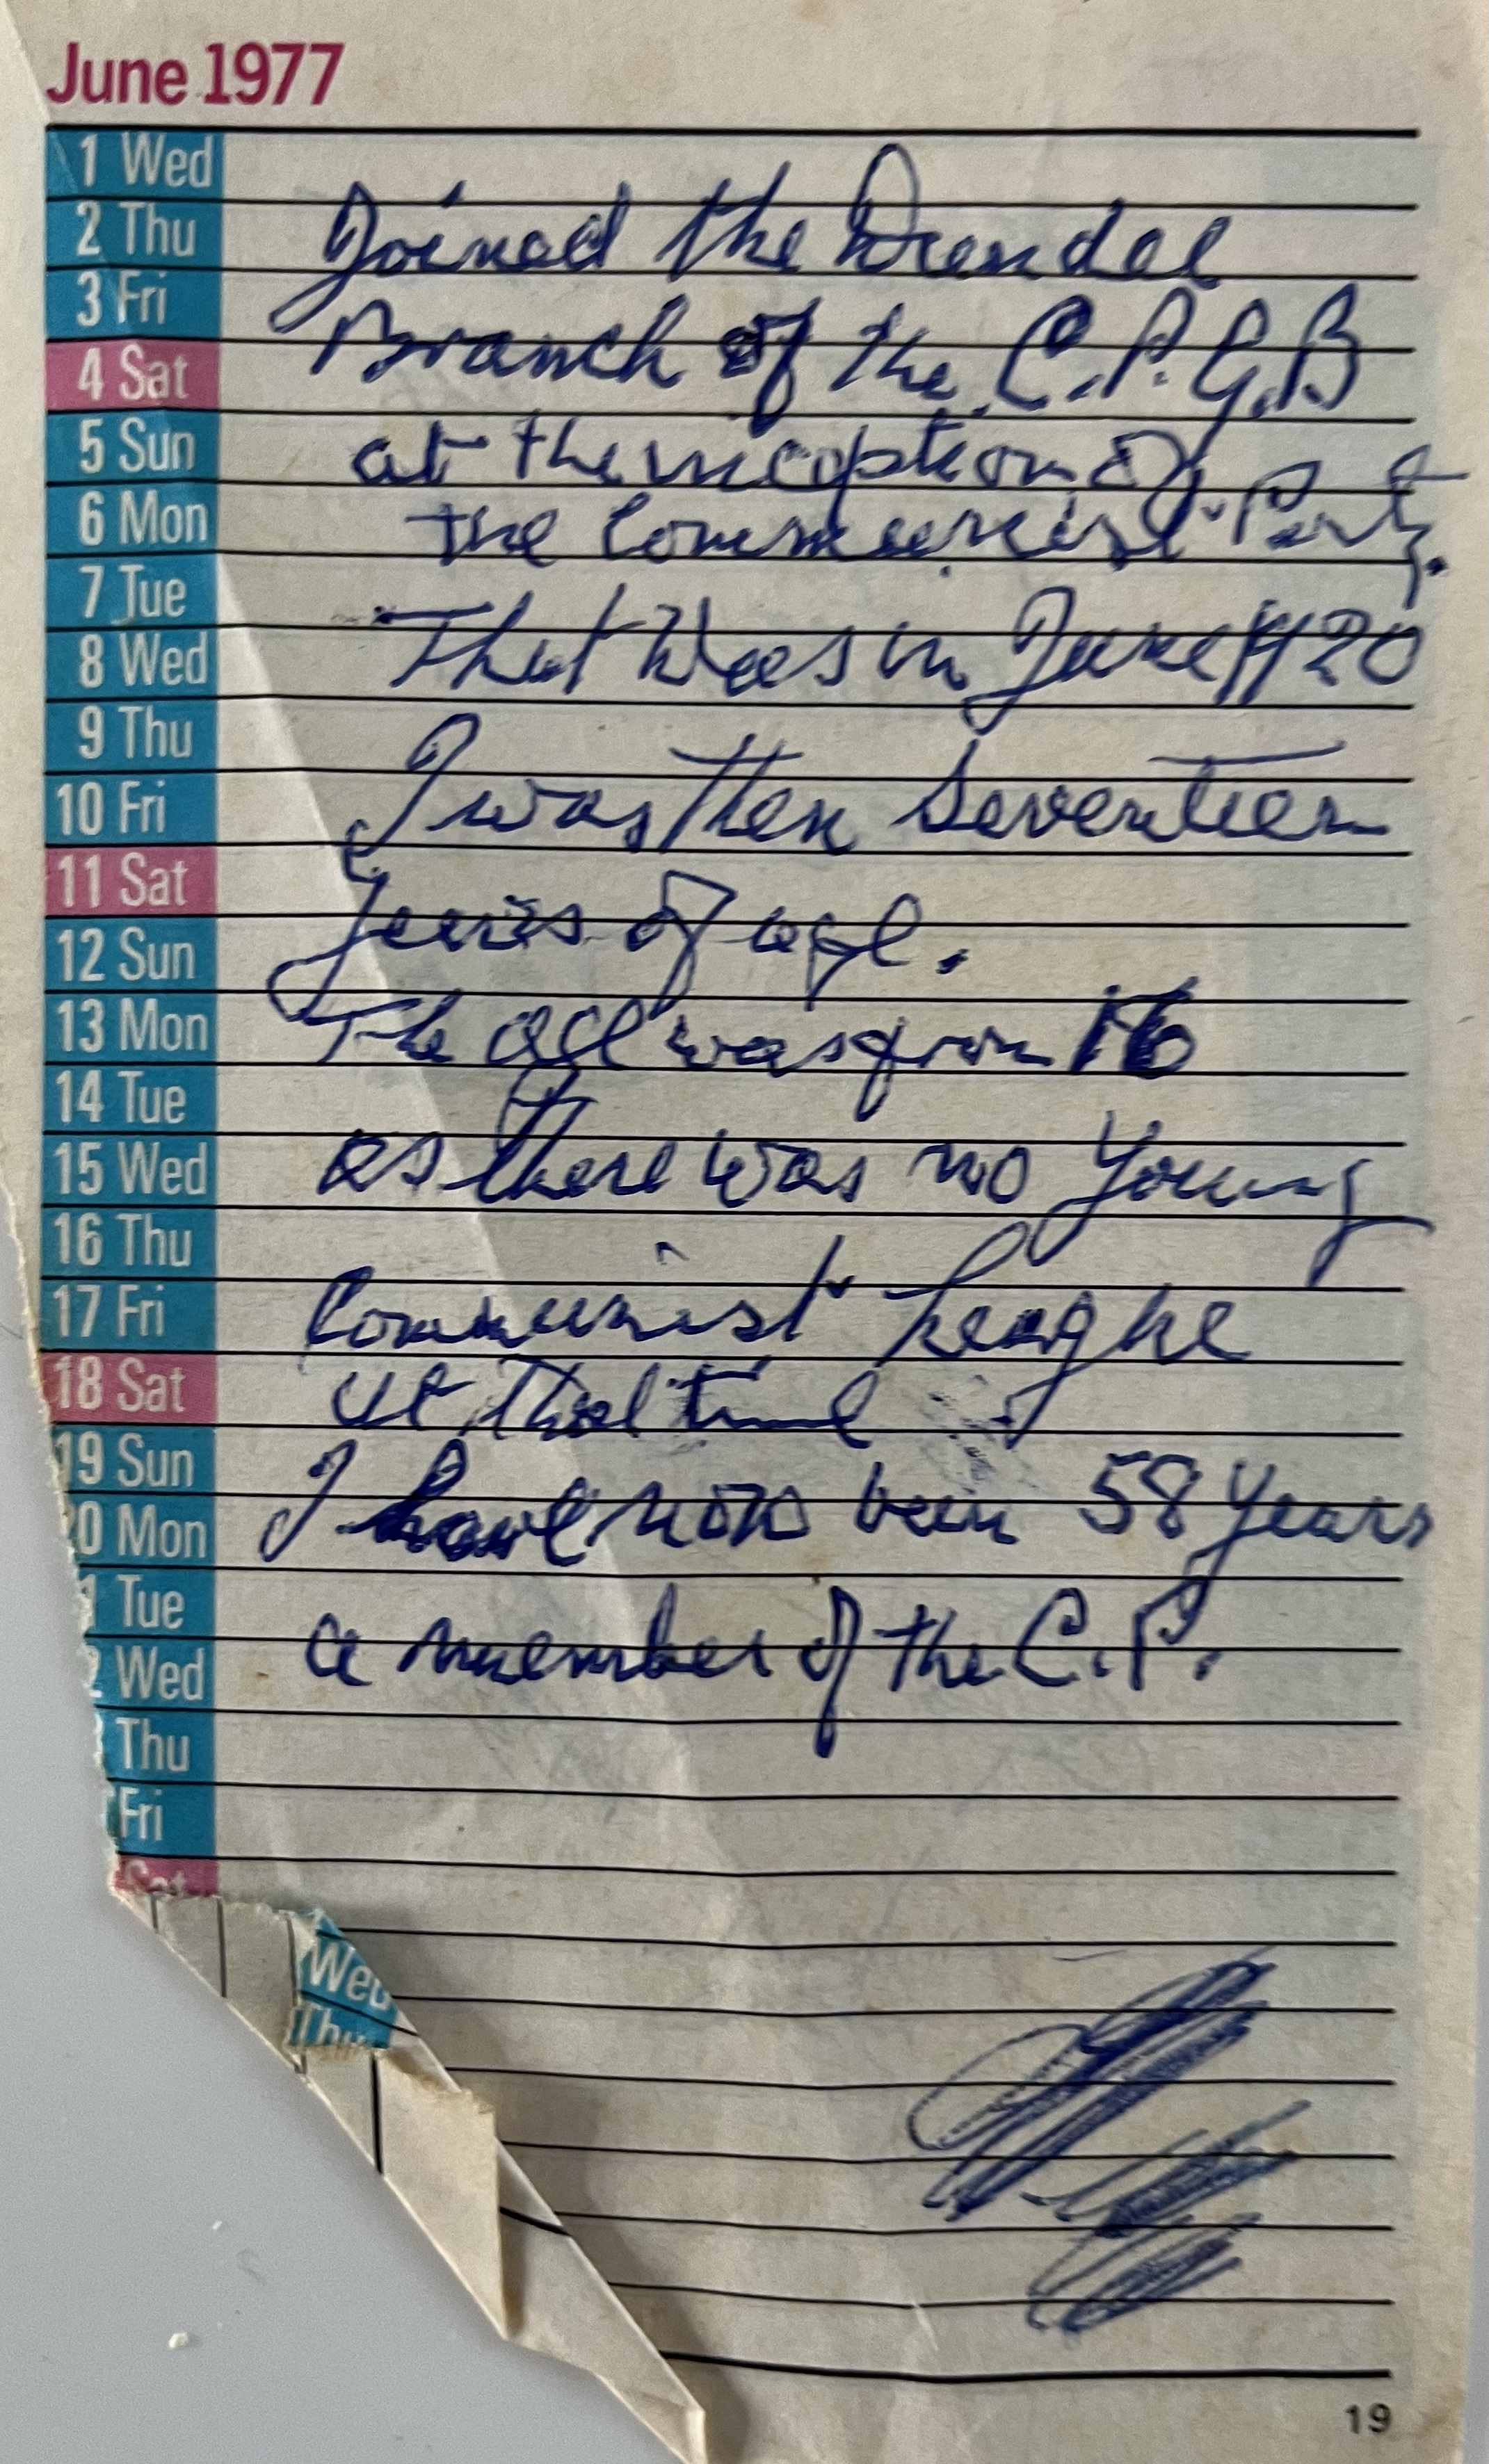 June 1977
1 Wed
2 Thu Joined the
3 Fri Branch of the C.P.G.B
4 Sat
5 Sun at the inception of
6 Mon the Communist Party.
7 Tue
8 Wed That was in June 1920
9 Thu
10 Fri I was then Seventeen
11 Sat
12 Sun years of age.
13 Mon The age was from 16
14 Tue
15 Wed as there was no Young
16 Thu
17 Fri Communist League
18 Sat at that time
19 Sun
20 Mon I have now been 58 years
1 Tue
2 Wed a member of the C.P.
Thu
Fri
Sat
Wed
Thu
19